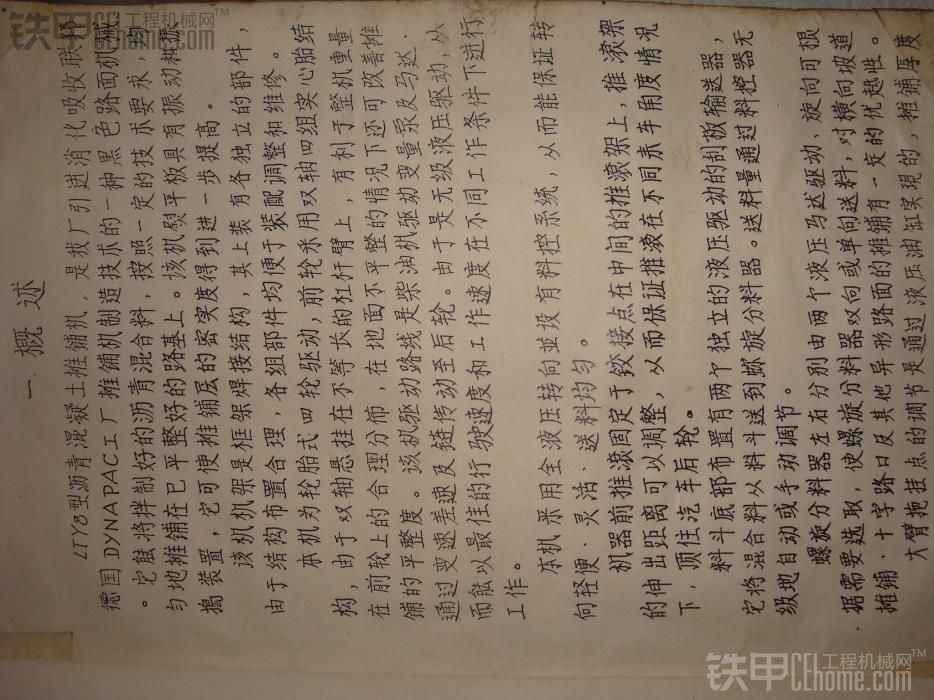 一 概 述
LTY8型沥青混凝土摊铺机，是我厂引进消化吸收联邦
德国DYNAPAC工厂摊铺机制造技术的一种黑色路面机械
。它能将拌制好的沥青混合料，按照一定的技术要求，均
匀地摊铺在已平整好的路基上。该机熨平板具有振动和振
捣装置，它可使摊铺层的密实度得到进一步提高。
该机机架是框架焊接结构，其上装有各独立的部件，
由于结构布置合理，各组部件均便于装配调整和维修。
本机为轮胎式四轮驱动，前轮采用双轴四组实心胎结
构，由于双轴悬挂在不等长的杠杆臂上，有利于整机重量
在前轮上的合理分布，在地面不平整的情况下还可改善摊
铺的平整度。该机驱动路线是柴油机驱动变量泵及马达、
通过变速差速及链传动至后轮。由于是无级液压驱动，从
而能以最佳的行驶速度和工作速度在不同工作条件下进行
工作。
本机采用全液压转向並设有料控系统，从而能保证转
向轻便、灵活、送料均匀。
机器前推滚固定于铰接点在中间的推滚架上，推滚架
的伸出距离可以调整，从而保证推滚在不同卖车角度情况
下，顶住汽车后轮。
料斗底部布置有两个独立的液压驱动的刮板输送器，
它将混合料从料斗送到螂旋分料器。送料量通过料控器无
级地自动或手动调节。
螺旋分料器左右分别由两个液压马达驱动、旋向可根
据需要选取，使螺旋分料器双向或单向送料，对横向坡道
摊铺、十字路口及其他异形路面的摊铺有一定的优越性。
大臂拖挂点的调节是通过液压油缸实现的，摊铺厚度
铁甲工程机械网™
CEhome.com
铁甲工程机械网™
CEhome.com